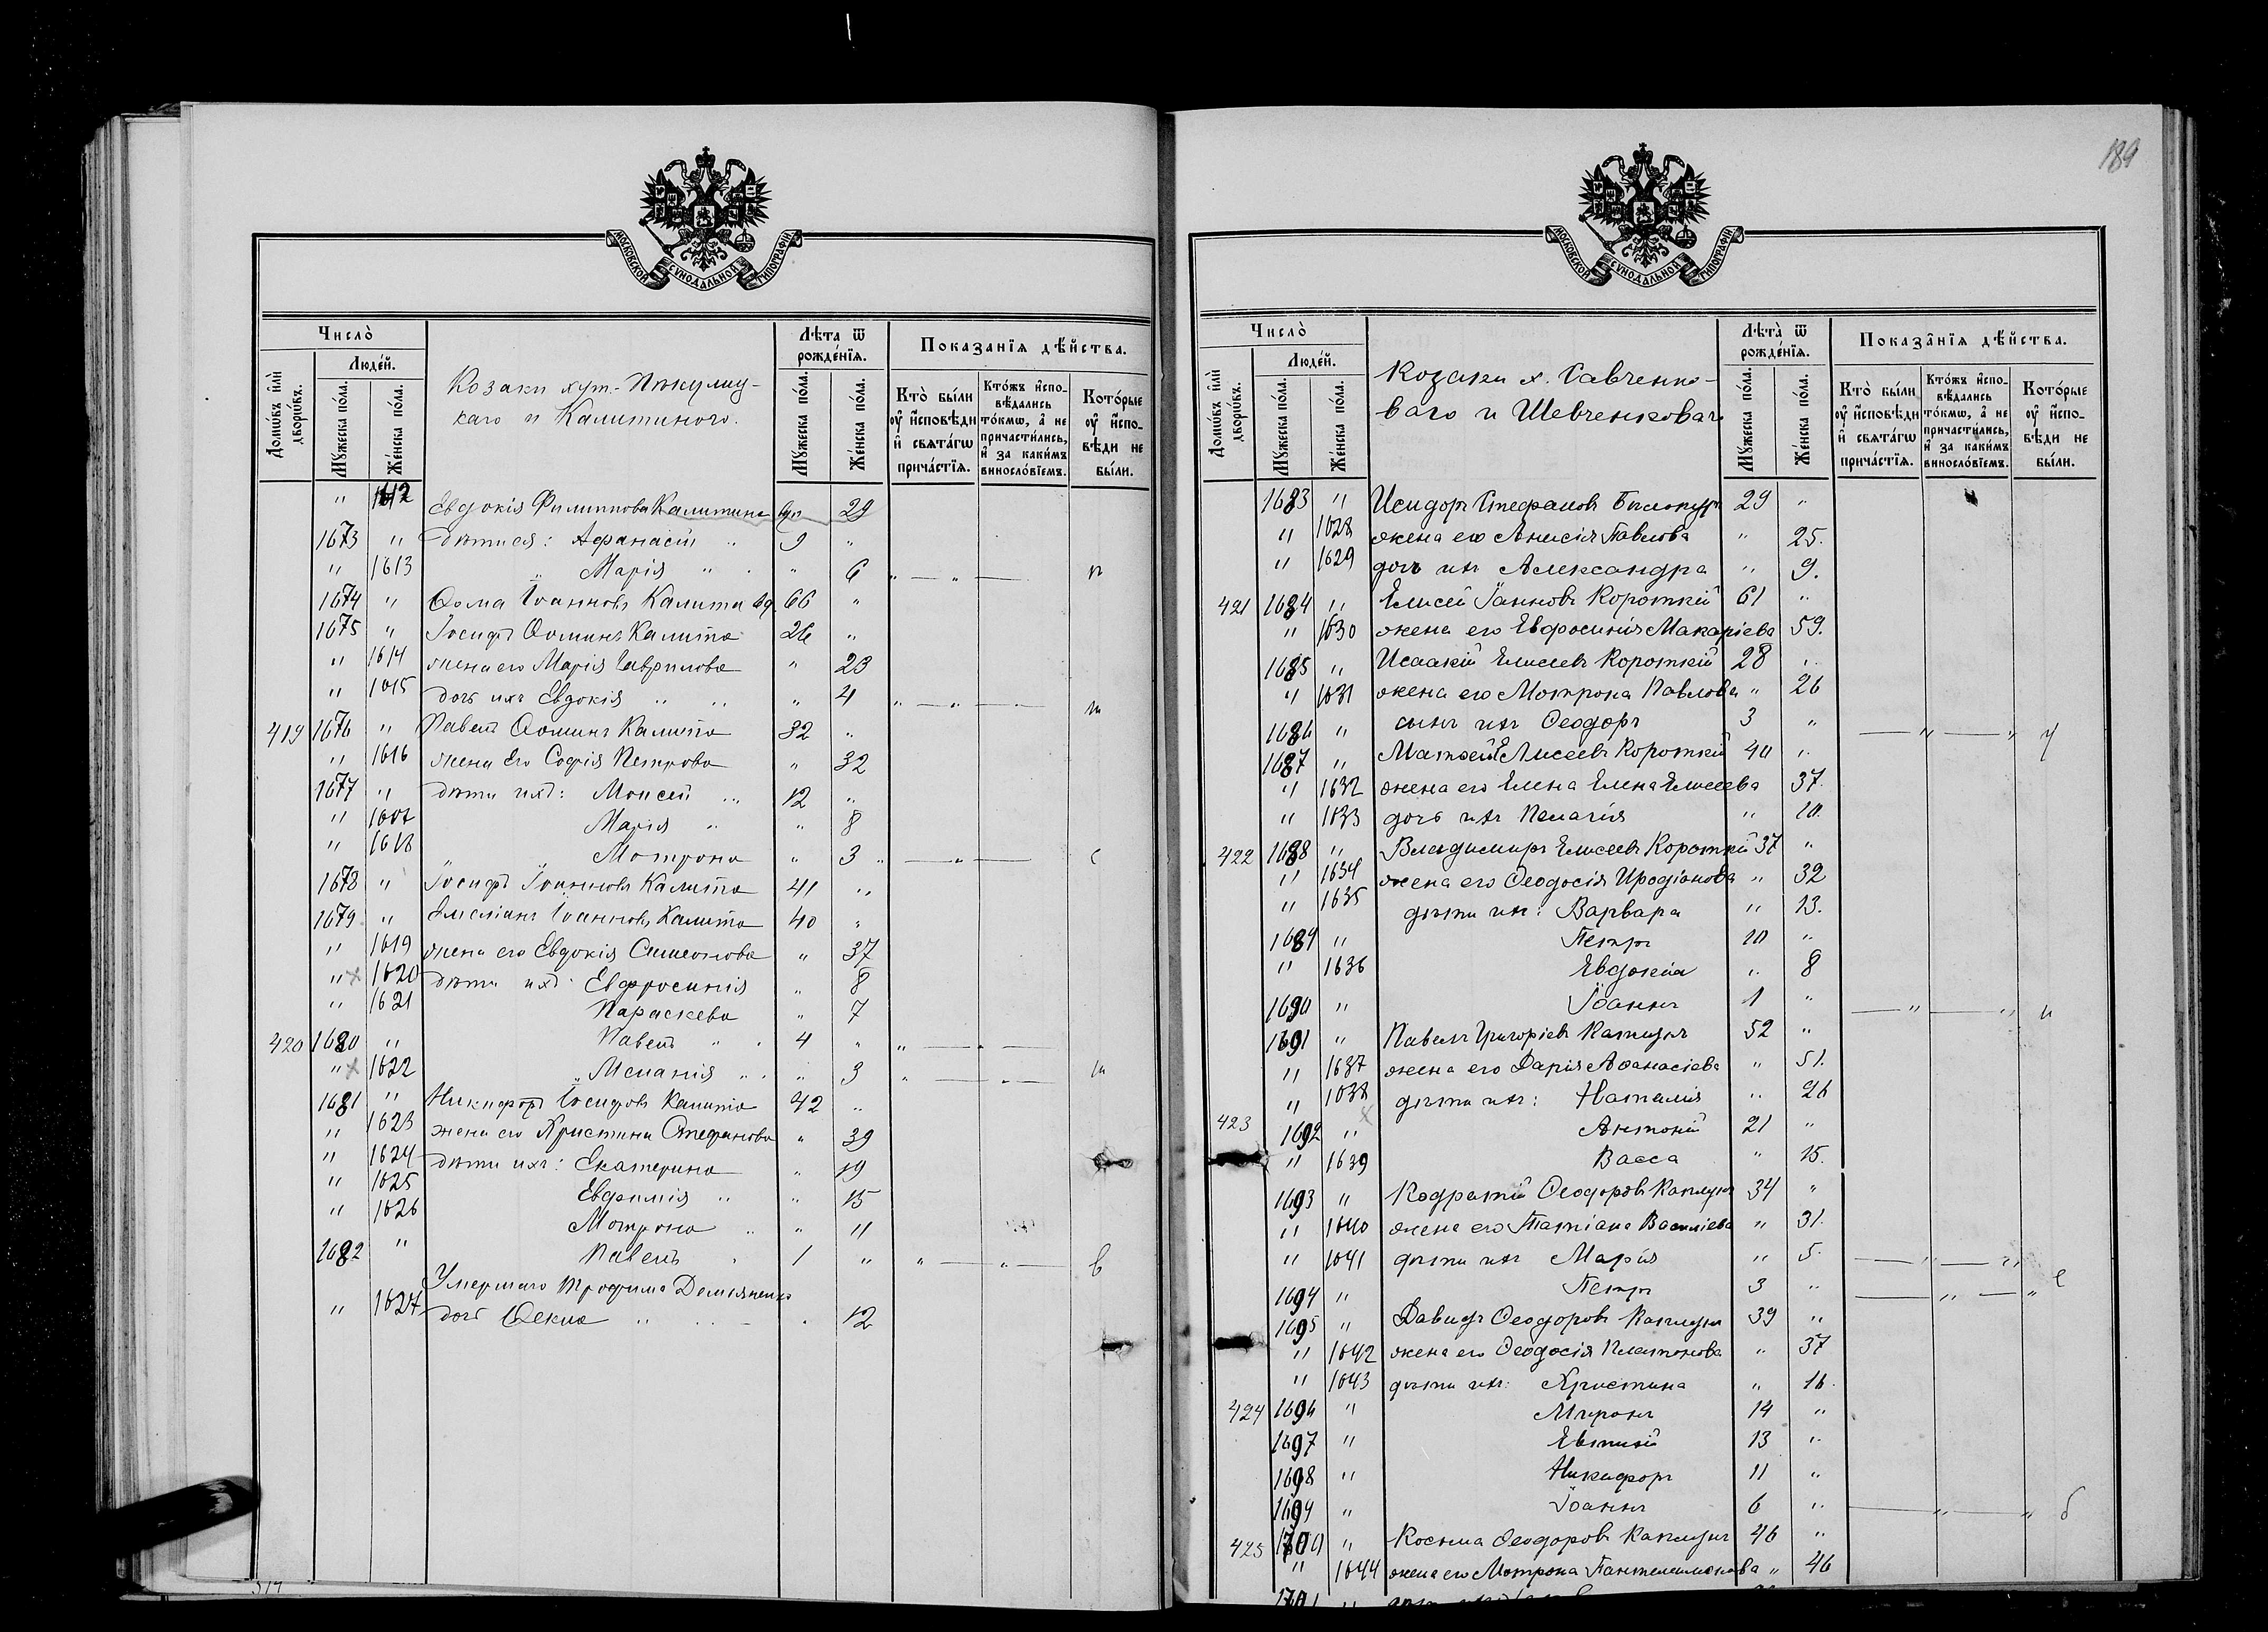 189
МОСКОВСКОЙ СѴНОДАЛЬНОЙ ТИПОГРАФІИ
Число̀
Люде́й.
Домѡ́въ и҆лѝ дворѡ́въ.
Мꙋ́жеска по́ла.
Же́нска по́ла.
Козаки хут.
каго и Калитиного.
Лѣ́та ѿ рожде́нїѧ.
Мꙋ́жеска по́ла.
Же́нска по́ла.
Показа́нїѧ дѣ́йства.
Кто̀ бы́ли оу҆ и҆сповѣ́ди и҆ свѧта́гѡ прича́стїѧ.
Кто́жъ и҆спо-вѣ́дались то́кмѡ, а҆ не причасти́лись, и҆ за каки́мъ винослόвїемъ.
Кото́рые оу҆ и҆спо-вѣ́ди не бы́ли.
" 1612 Евдокія Филиппова Калитина вд. 29
1673 " дѣти ея: Афанасій " 9 "
" 1613 " Марія " " 6 " — " —
1674 " Ѳома Іоанновъ Калита вд. 66 "
1675 " Іосифъ Ѳоминъ Калита 26 "
" 1614 жена его Марія Гаврилова " 23
" 1615 дочь ихъ Евдокія " " " 4 " — " —
419 1676 " Павелъ Ѳоминъ Калита 32 "
" 1616 жена его Софія Петрова " 32
1677 " дѣти ихъ: Моисей " 12 "
" Марія " " 8
" 1618 Мотрона " 3 " — " — с
1678 " Іосифъ Іоанновъ Калита 41 "
1679 " Емеліанъ Іоанновъ Калита 40 "
" 1619 жена его Евдокія Симеонова " 37
" х 1620 дѣти ихъ: Евфросинія " 8
" 1621 Параскева " 7
420 1680 " Павелъ " 4 " " — " —
" х 1622 " Меланія " " 3 " — " —
1681 " Никифоръ Іосифовъ Калита 42 "
" 1623 жена его Христина Стефанова " 39
" 1624 дѣти ихъ: Екатерина " 19
" 1625 Евфимія " " 15
" 1626 Мотрона " " 11
1682 " Павелъ 1 " " — " — в
Умершаго Трофима Демьяненко
" 1627 дочь Ѳекла " 12
МОСКОВСКОЙ СѴНОДАЛЬНОЙ ТИПОГРАФІИ
Число̀
Люде́й.
Домѡ́въ и҆лѝ дворѡ́въ.
Мꙋ́жеска по́ла.
Же́нска по́ла.
Козаки х. Савченко-
ваго и Шевченковаго
Лѣта̀ ѿ рожде́нїѧ.
Мꙋ́жеска по́ла.
Же́нска по́ла.
Показа̑нїѧ дѣ́йства.
Кто̀ бы́ли оу҆ и҆сповѣ́ди и҆ свѧта́гѡ прича́стїѧ.
Кто́жъ и҆спо-вѣ́дались то́кмѡ, а҆ не причасти́лись, и҆ за каки́мъ винослόвїемъ.
Кото́рые оу҆ и҆спо-вѣ́ди не бы́ли.
1683 " Исидоръ Стефановъ 29 "
" 1628 жена его Анисія Павлова " 25.
" 1629 дочь ихъ Александра " 9.
421 1684 " Елисей Іанновъ Короткій 61 "
" 1630 жена его Евфросинія Макаріева 59.
1685 " Исаакій Елисеевъ Короткій 28 "
" 1631 жена его Мотрона Павлова " 26
1686 " сынъ ихъ Ѳеодоръ 3 " — " — " у
1687 " Матѳей Елисеевъ Короткій 40 "
" 1632 жена его Елена Елена Елисеева 37.
" 1633 дочь ихъ Пелагія " 10.
422 1688 " Владимиръ Елисеевъ Короткій 37 "
" 1634 жена его Ѳеодосія Иродіонова " 32
" 1635 дѣти ихъ: Варвара " 13.
1689 " Петръ 10 "
" 1636 Евдокіа " 8
1690 " Іоаннъ 1 " — " — " и
1691 " Павелъ Григоріевъ Каплунъ 52 "
" 1637 жена его Дарія Аѳанасіева " 51.
" 1638 дѣти ихъ: Наталія " 26
423 1692 " Антоній 21 "
" 1639 Васса " 15.
1693 " Кодратій Ѳеодоровъ Каплунъ 34 "
" 1640 жена его Татіана Василіева " 31.
" 1641 дѣти ихъ Марія " 5. — " — "
1694 " Петръ 3 " — " — " е
1695 " Давидъ Ѳеодоровъ Каплунъ 39 "
" 1642 жена его Ѳеодосія Платонова " 37
" 1643 дѣти ихъ: Христина " 16.
424 1696 " Миронъ 14 "
1697 " Евтихій 13 "
1698 " Никифоръ 11 "
1699 " Іоаннъ 6 " — " — " б
425 1700 " Косьма Ѳеодоровъ Каплунъ 46 "
" 1644 жена его Мотрона Пантелеимонова " 46
1701 "